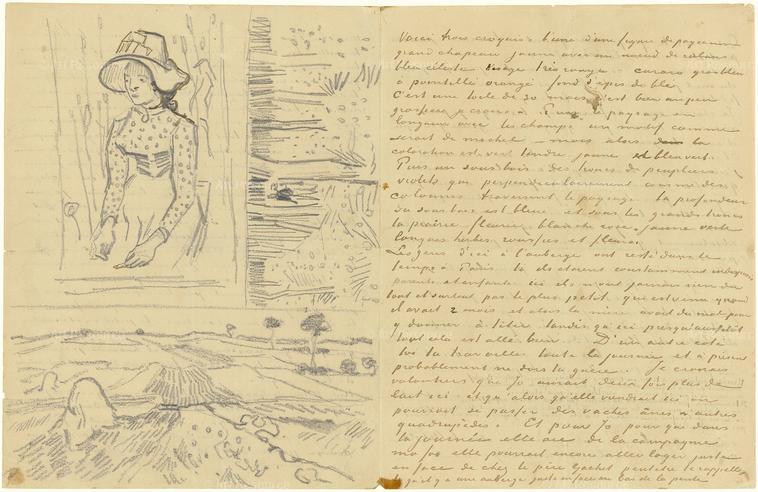 Voici trois croquis – l'une d'une figure de paysanne
grand chapeau jaune avec un nœud de rubans
bleu céleste visage très rouge caraco gros bleu
à pointillé orangé fond d'épis de blé
C'est une toile de 30 mais c'est bien un peu
grossier je crains. Puis le paysage en
longueur avec les champs un motif comme
serait de Michel – mais alors la
coloration est vert tendre jaune et bleu vert.
Puis un sous bois, des troncs de peupliers
violets qui perpendiculairement comme des
colonnes traversent le paysage la profondeur
du sous bois est bleue et sous les grands troncs
la prairie fleurie blanche rose jaune verte
longues herbes roussies et fleurs.
Les gens d'ici à l'auberge ont resté dans le
temps à Paris la ils étaient constamment indisposés
parents et enfants ici ils n'ont jamais rien du
tout et surtout pas le plus petit qui est venu quand
il avait 2 mois et alors la mère avait du mal pour
y donner à téter tandis qu'ici presqu'aussitôt
tout cela est allé bien. D'un autre coté
toi tu travailles toute la journée et à present
probablement ne dors tu guère. Je croirais
volontiers que Jo aurait deux fois plus de
lait ici et qu'alors qu'elle viendrait ici on
pourrait se passer des vaches ânes et autres
quadrupèdes. Et pour Jo pour que dans
la journée elle aie de la compagnie
ma foi elle pourrait encore aller loger juste
en face de chez le père Gachet peutêtre te rappelles
tu qu'il y a une auberge juste en face au bas de la pente